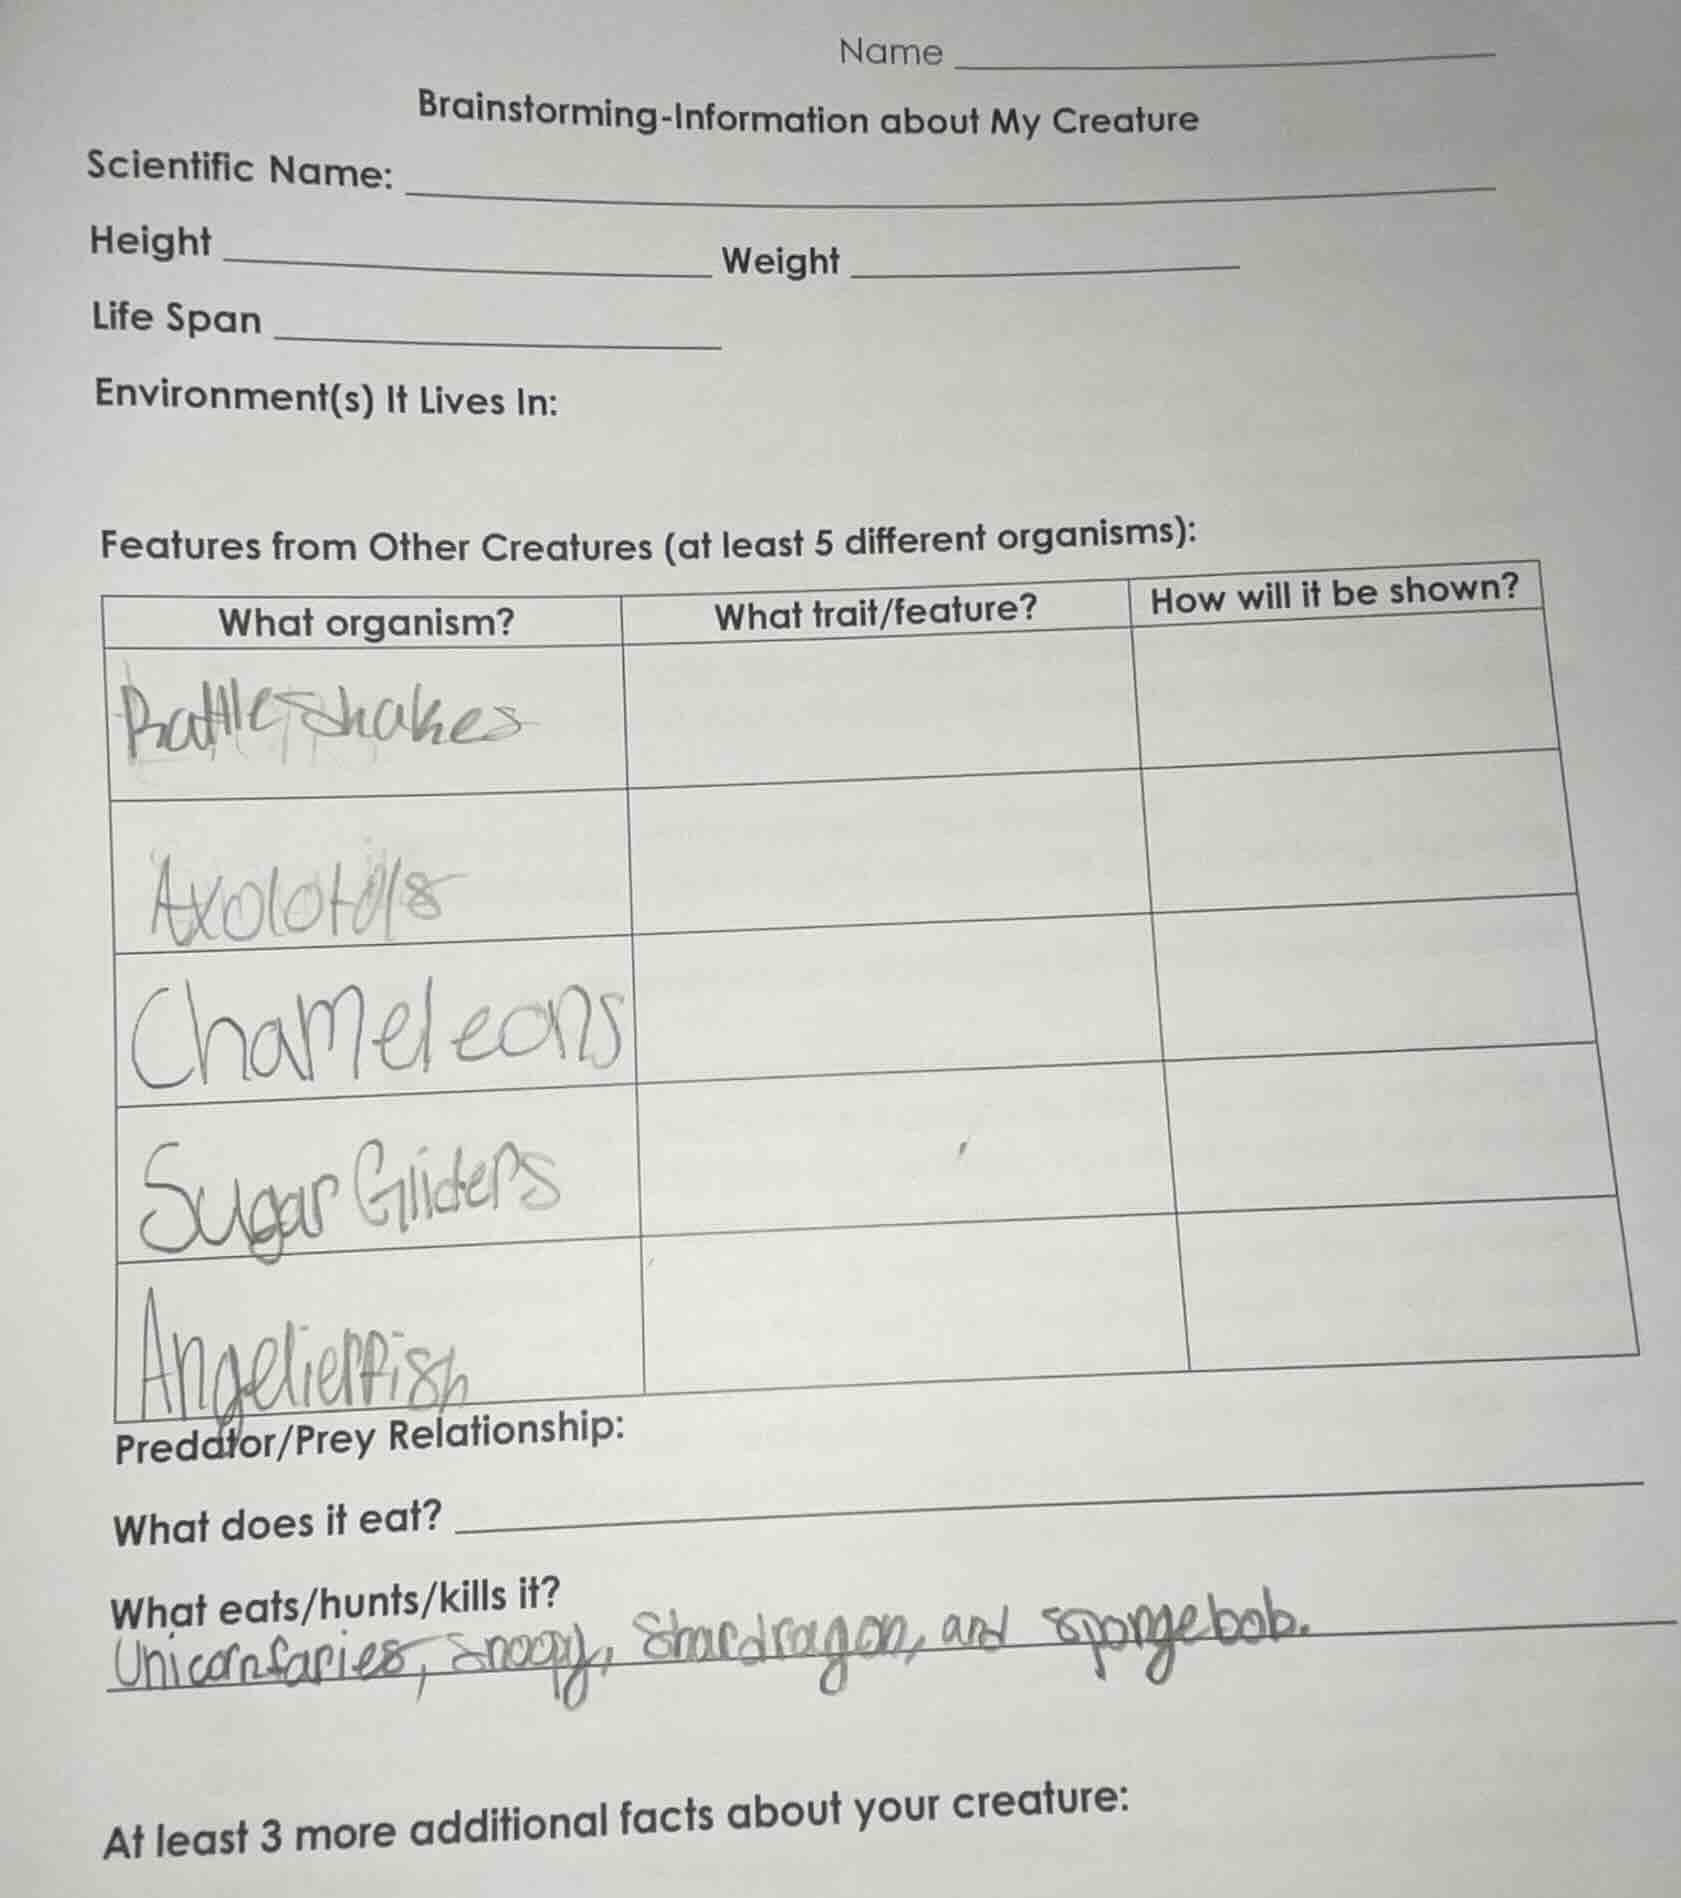 Name
Brainstorming-Information about My Creature
Scientific Name:
Height Weight
Life Span
Environment(s) It Lives In:
Features from Other Creatures (at least 5 different organisms):
What organism? What trait/feature? How will it be shown?
Rattle snakes
Axolotols
Chameleons
Sugar Gliders
Angelierfish
Predator/Prey Relationship:
What does it eat?
What eats/hunts/kills it?
Unicornfaries, Snoopy, Stardragon, and spongebob.
At least 3 more additional facts about your creature: